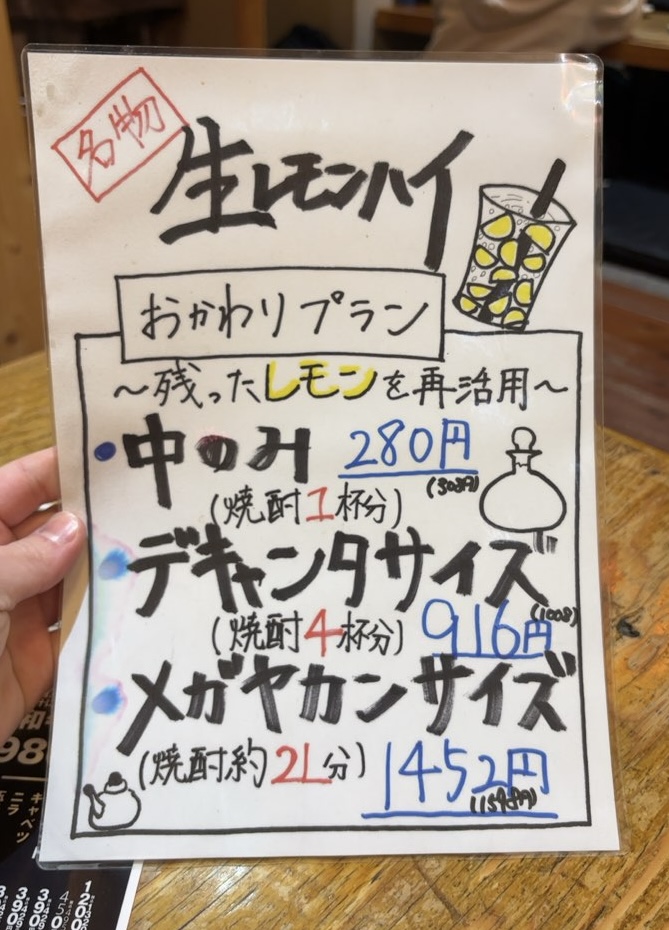 名物
生レモンハイ
おかわりプラン
～残ったレモンを再活用～
中のみ 280円
(308円)
(焼酎1杯分)
デキャンタサイズ
(焼酎4杯分) 916円
(1008)
メガヤカンサイズ
(焼酎約2L分) 1452円
キャベツ